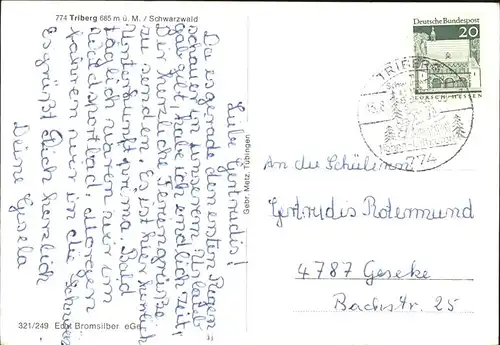 774 Triberg 665 m ü. M. / Schwarzwald
Liebe Gertrudis!
Da es gerade den ersten Regen-
schauer in unserem Urlaub
gab, habe ich endlich Zeit,
Dir herzliche Feriengrüße
zu senden. Es ist hier herrlich
Unterkunft prima. Bald
täglich waren wir im
Waldsportbad. Morgen
fahren wir in die Schweiz
Es grüßt Dich herzlich
Deine Gisela
321/249 Echt Bromsilber
Gebr. Metz, Tübingen
Deutsche Bundespost
20
LORSCH/HESSEN
TRIBERG
An die Schülerin
Gertrudis Rotermund
4787 Geseke
Bachstr. 25